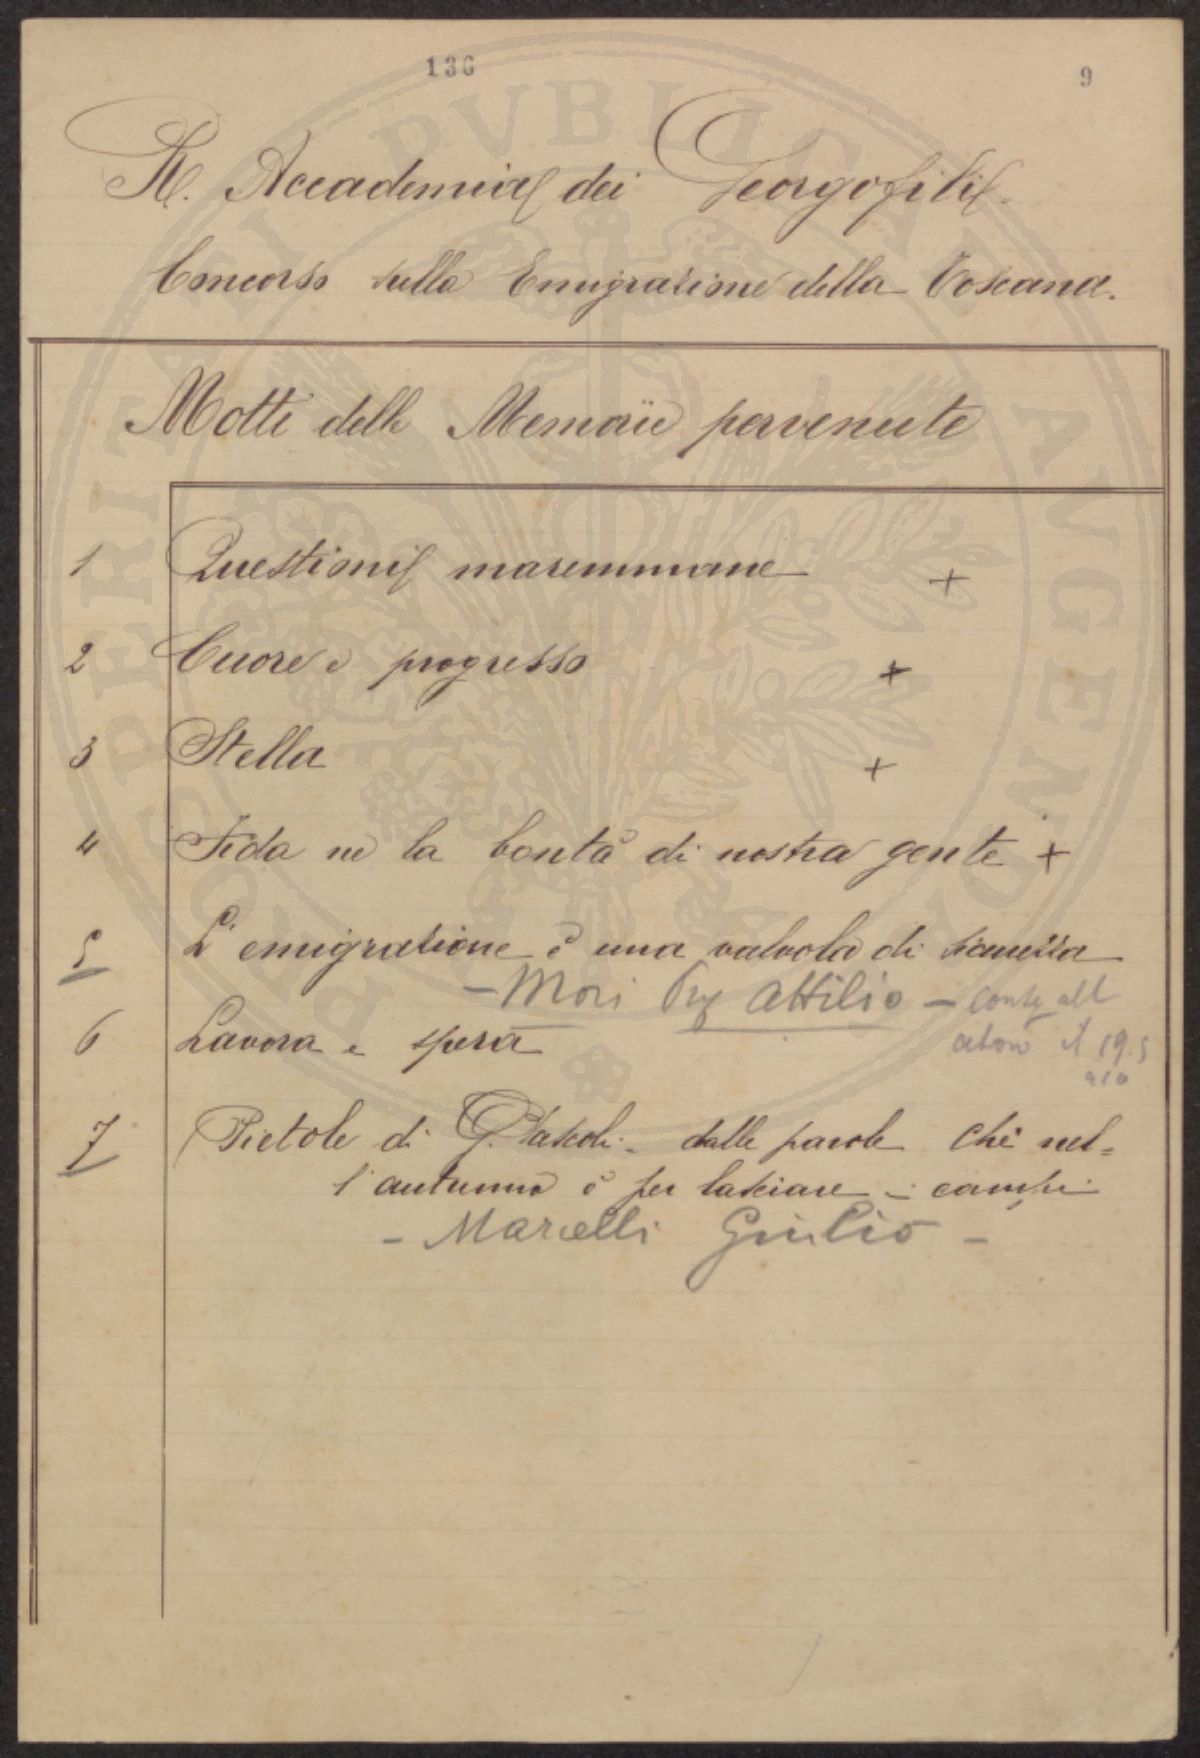 136
9
R. Accademia dei Georgofili
Concorso sulla Emigrazione della Toscana.
Motti delle Memorie pervenute
1 Questioni maremmane +
2 Cuore e progresso +
3 Stella +
4 Fida ne la bontà di nostra gente +
5 L'emigrazione è una valvola di sicurezza
- Mori Attilio -
6 Lavora e spera
il 19.5
910
7 Pietole di G. Pascoli - dalle parole che nel=
l'autunno è per lasciare i campi
- Marcelli Giulio -
PROSPERITATI PVBLICAE AVGENDAE